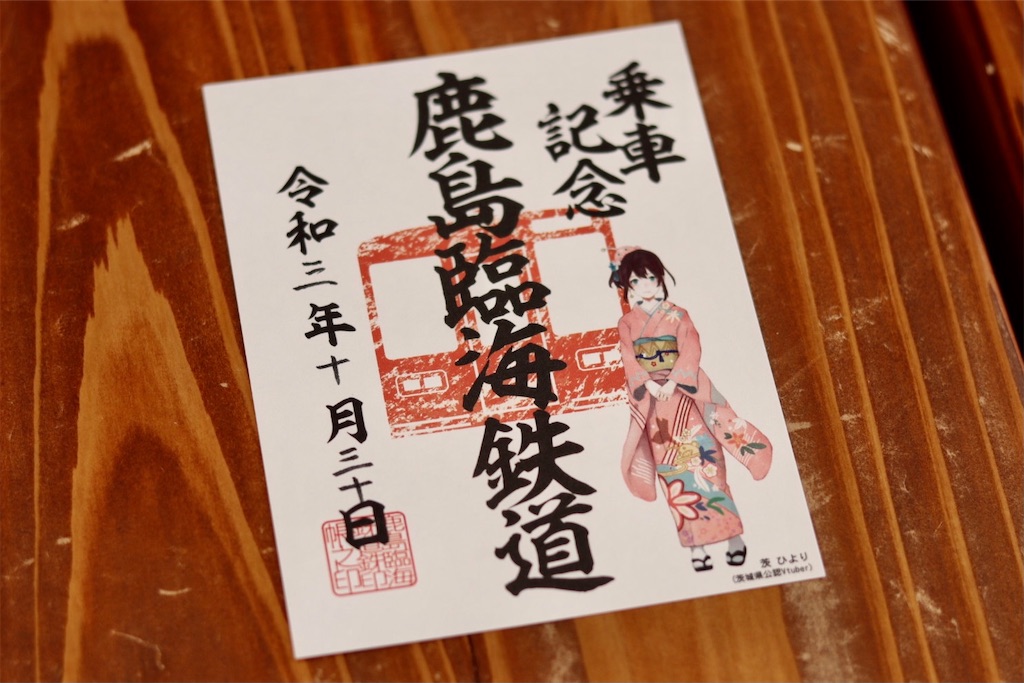 乗車
記念
鹿島臨海鉄道
令和三年十月三十日
茨 ひより
(茨城県公認Vtuber)